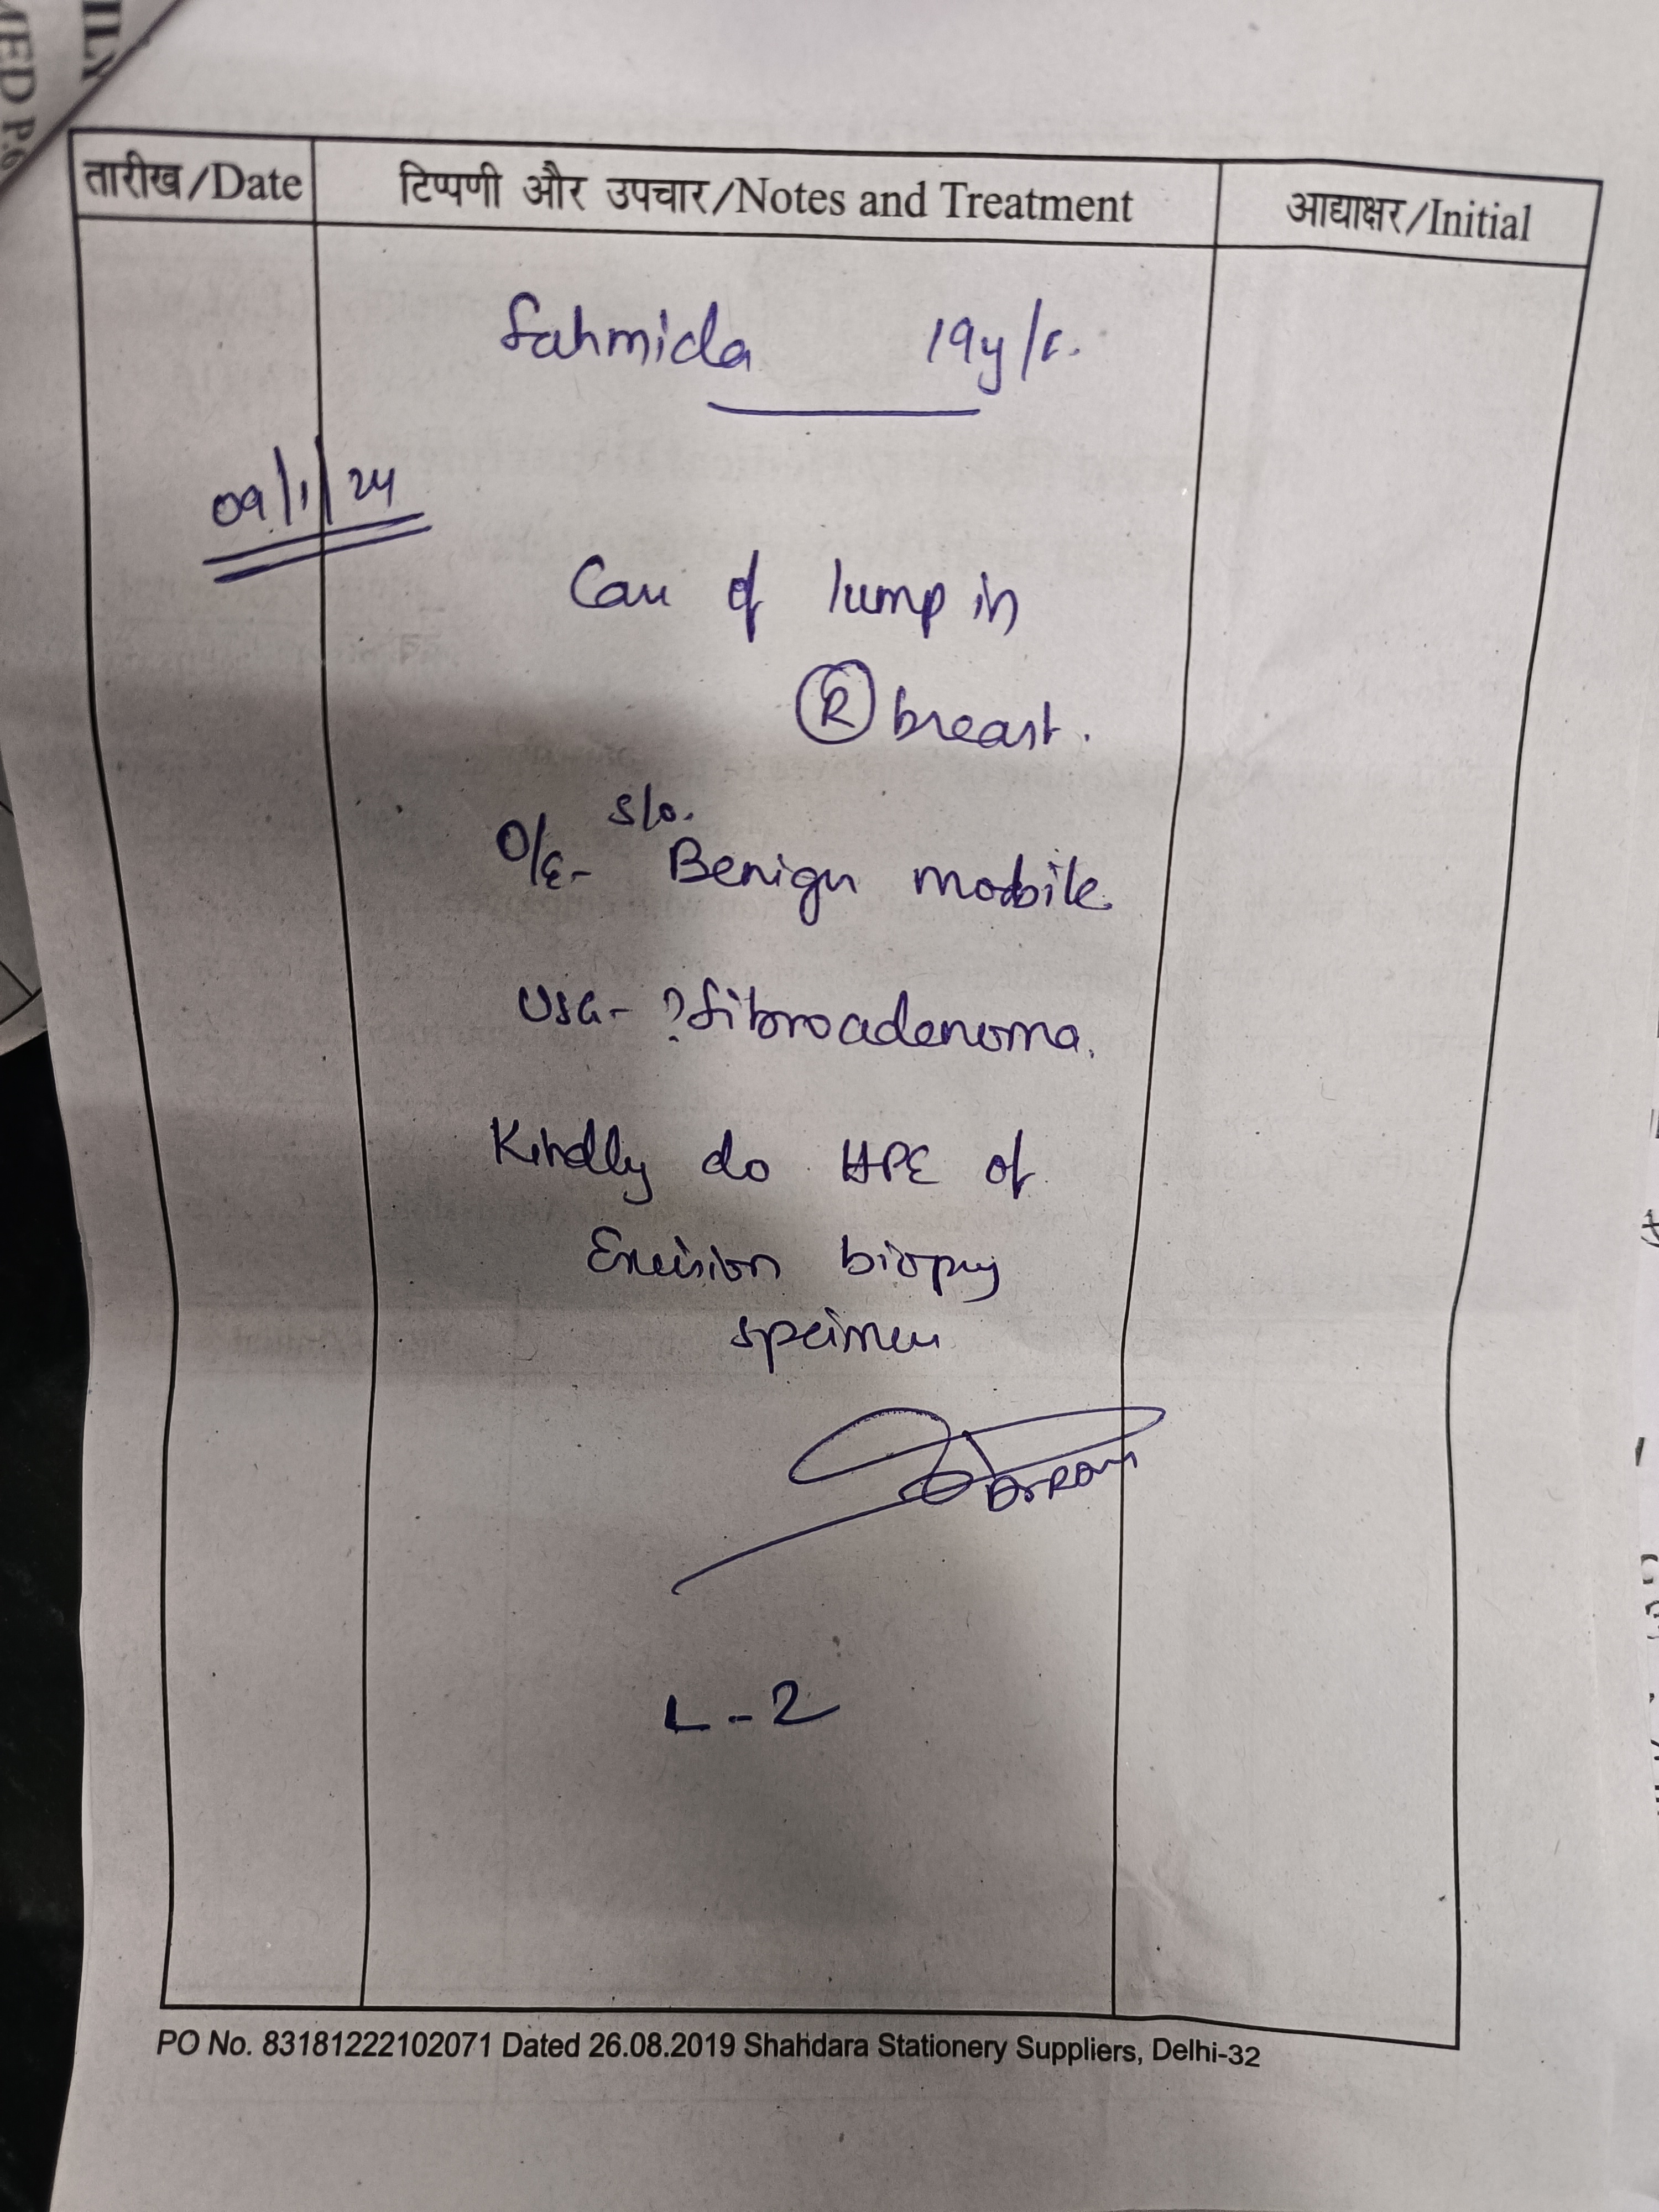 ILY
MED P.6
तारीख/Date टिप्पणी और उपचार/Notes and Treatment आद्याक्षर/Initial
Fahmida 19y/F.
09/1/24
Case of lump in
(R) breast.
S/o.
O/E- Benign mobile
USG- ?fibroadenoma.
Kindly do HPE of
Excision biopsy
specimen
L-2
PO No. 83181222102071 Dated 26.08.2019 Shahdara Stationery Suppliers, Delhi-32